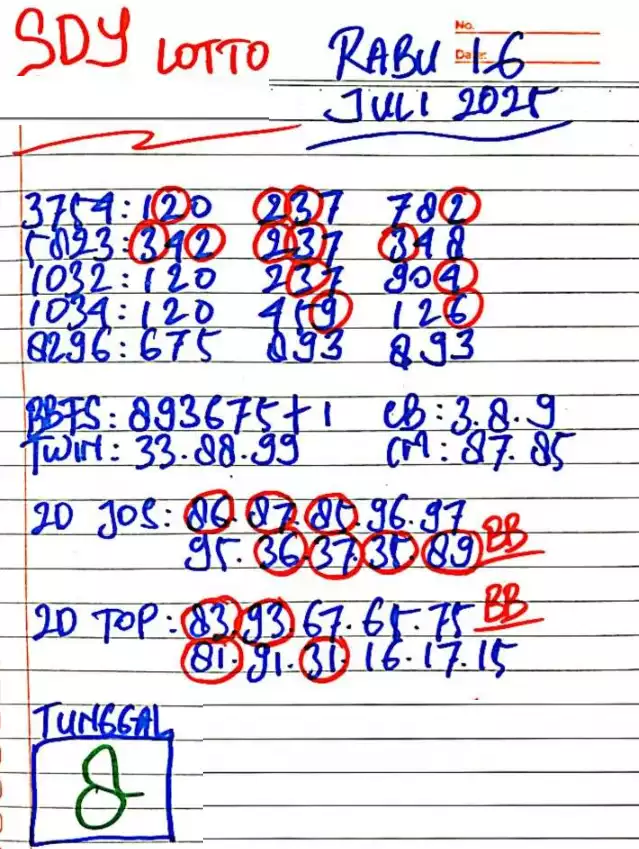 SDY LOTTO
No.
Date
RABU 16
JULI 2025
3754:120 237 782
5823:342 237 348
1032:120 237 904
1034:120 459 126
8296:675 893 893
BBFS: 893675+1 CB: 3.8.9
TWIN: 33.88.99 CM: 87.85
2D JOS: 86.87.85.96.97
95.36.37.35.89 BB
2D TOP: 83.93.67.65.75 BB
81.91.31.16.17.15
TUNGGAL
8